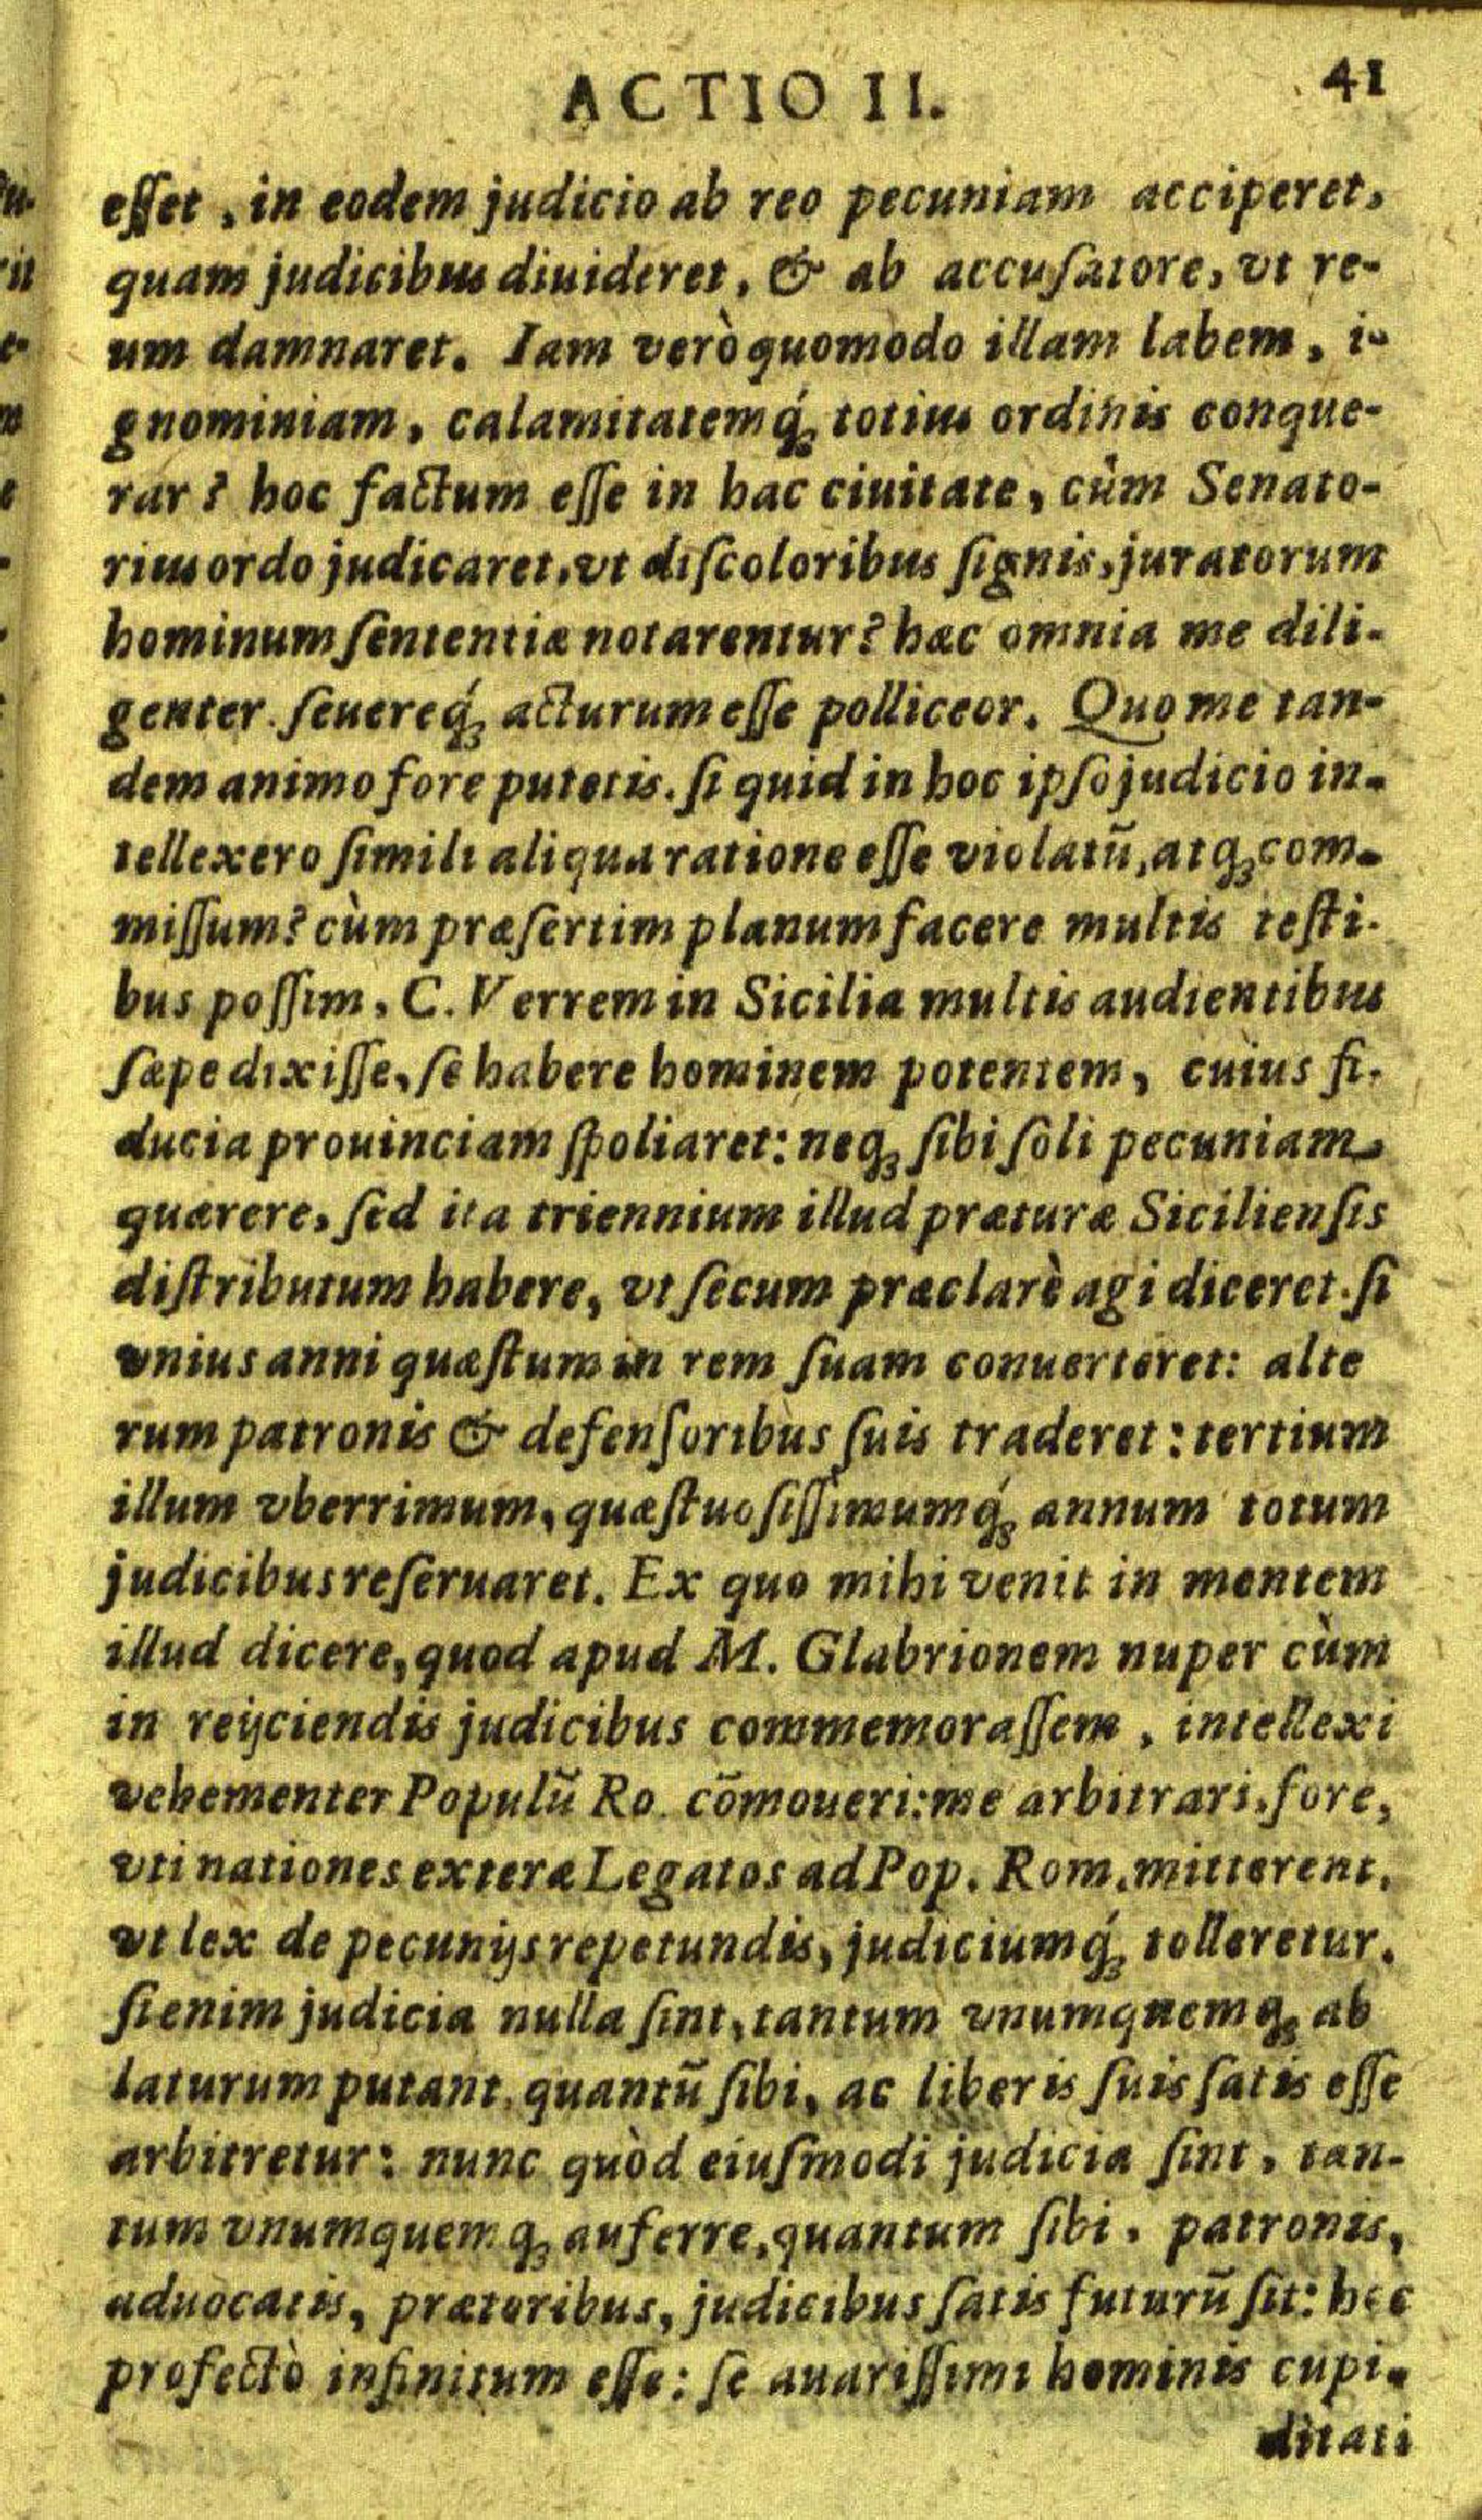 ACTIO II. 41
eſſet, in eodem judicio ab reo pecuniam acciperet,
quam judicibus diuideret, & ab accuſatore, vt re-
um damnaret. Iam verò quomodo illam labem, i-
gnominiam, calamitatemq́; totius ordinis conque-
rar? hoc factum eſſe in hac ciuitate, cùm Senato-
rius ordo judicaret, vt diſcoloribus ſignis, juratorum
hominum ſententiæ notarentur? hæc omnia me dili-
genter. ſeuereq́; acturum eſſe polliceor. Quo me tan-
dem animo fore putetis. ſi quid in hoc ipſo judicio in-
tellexero ſimili aliqua ratione eſſe violatū, atq; com-
miſſum? cùm præſertim planum facere multis teſti-
bus poſſim, C. Verrem in Sicilia multis audientibus
ſæpe dixiſſe, ſe habere hominem potentem, cuius fi-
ducia prouinciam ſpoliaret: neq; ſibi ſoli pecuniam
quærere, ſed ita triennium illud præturæ Sicilienſis
diſtributum habere, vt ſecum præclarè agi diceret. ſi
vnius anni quæſtum in rem ſuam conuerteret: alte
rum patronis & defenſoribus ſuis traderet: tertium
illum vberrimum, quæſtuoſiſſimumq́; annum totum
judicibus reſeruaret. Ex quo mihi venit in mentem
illud dicere, quod apud M. Glabrionem nuper cùm
in reijciendis judicibus commemoraſſem, intellexi
vehementer Populū Ro. cōmoueri: me arbitrari, fore,
vti nationes exteræ Legatos ad Pop. Rom. mitterent,
vt lex de pecunijs repetundis, judiciumq́; tolleretur.
ſi enim judicia nulla ſint, tantum vnumquemq; ab
laturum putant, quantū ſibi, ac liberis ſuis ſatis eſſe
arbitretur: nunc quòd eiuſmodi judicia ſint, tan-
tum vnumquemq; auferre, quantum ſibi, patronis,
aduocatis, prætoribus, judicibus ſatis futurū ſit: hoc
profectò infinitum eſſe: ſe auariſſimi hominis cupi-
ditati